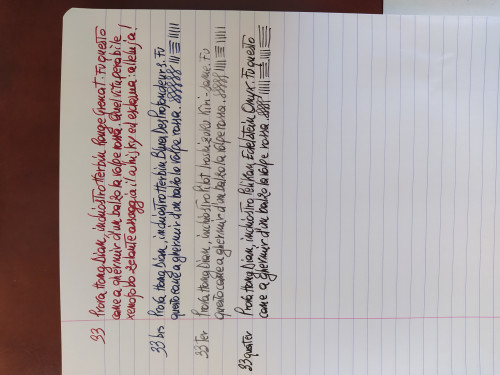 33 Prova Hong Dian, inchiostro Herbin Rouge Grenat. Fu questo
cane a ghermir d'un balzo la volpe rossa. Quel vituperabile
xenofobo zelante assaggia il whisky ed esclama: alleluja!
33 bis Prova Hong Dian, inchiostro Herbin Bleu des profondeurs. Fu
questo cane a ghermir d'un balzo la volpe rossa.
33 ter Prova Hong Dian, inchiostro Pilot Iroshizuku Kiri-same. Fu
questo cane a ghermir d'un balzo la volpe rossa.
33 quater Prova Hong Dian, inchiostro Pelikan Edelstein Onyx. Fu questo
cane a ghermir d'un balzo la volpe rossa.